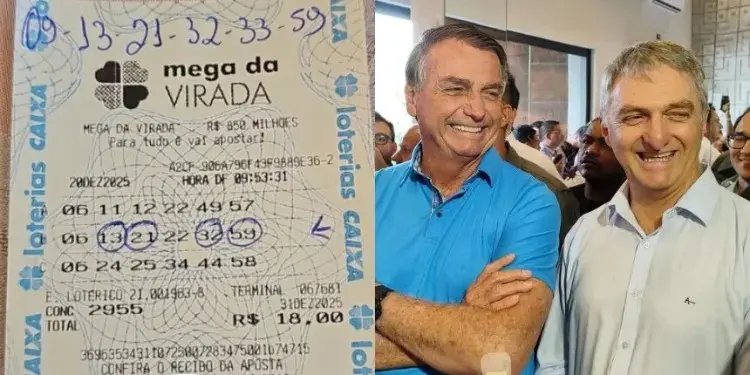 09-13-21-32-33-59
mega da
VIRADA
MEGA DA VIRADA R$ 850 MILHOES
Para tudo e vai apostar!
20DEZ2025 HORA DF 09:53:31
06 11 12 22 49 57
06 13 21 22 32 59
06 24 25 34 44 58
E. LOTERICO 21.001963-8 TERMINAL 067681
31DEZ2025
CONC 2955
TOTAL R$ 18,00
CONFIRA O RECIBO DA APOSTA
loterias CAIXA
loterias CAIXA
CAIXA
loterias